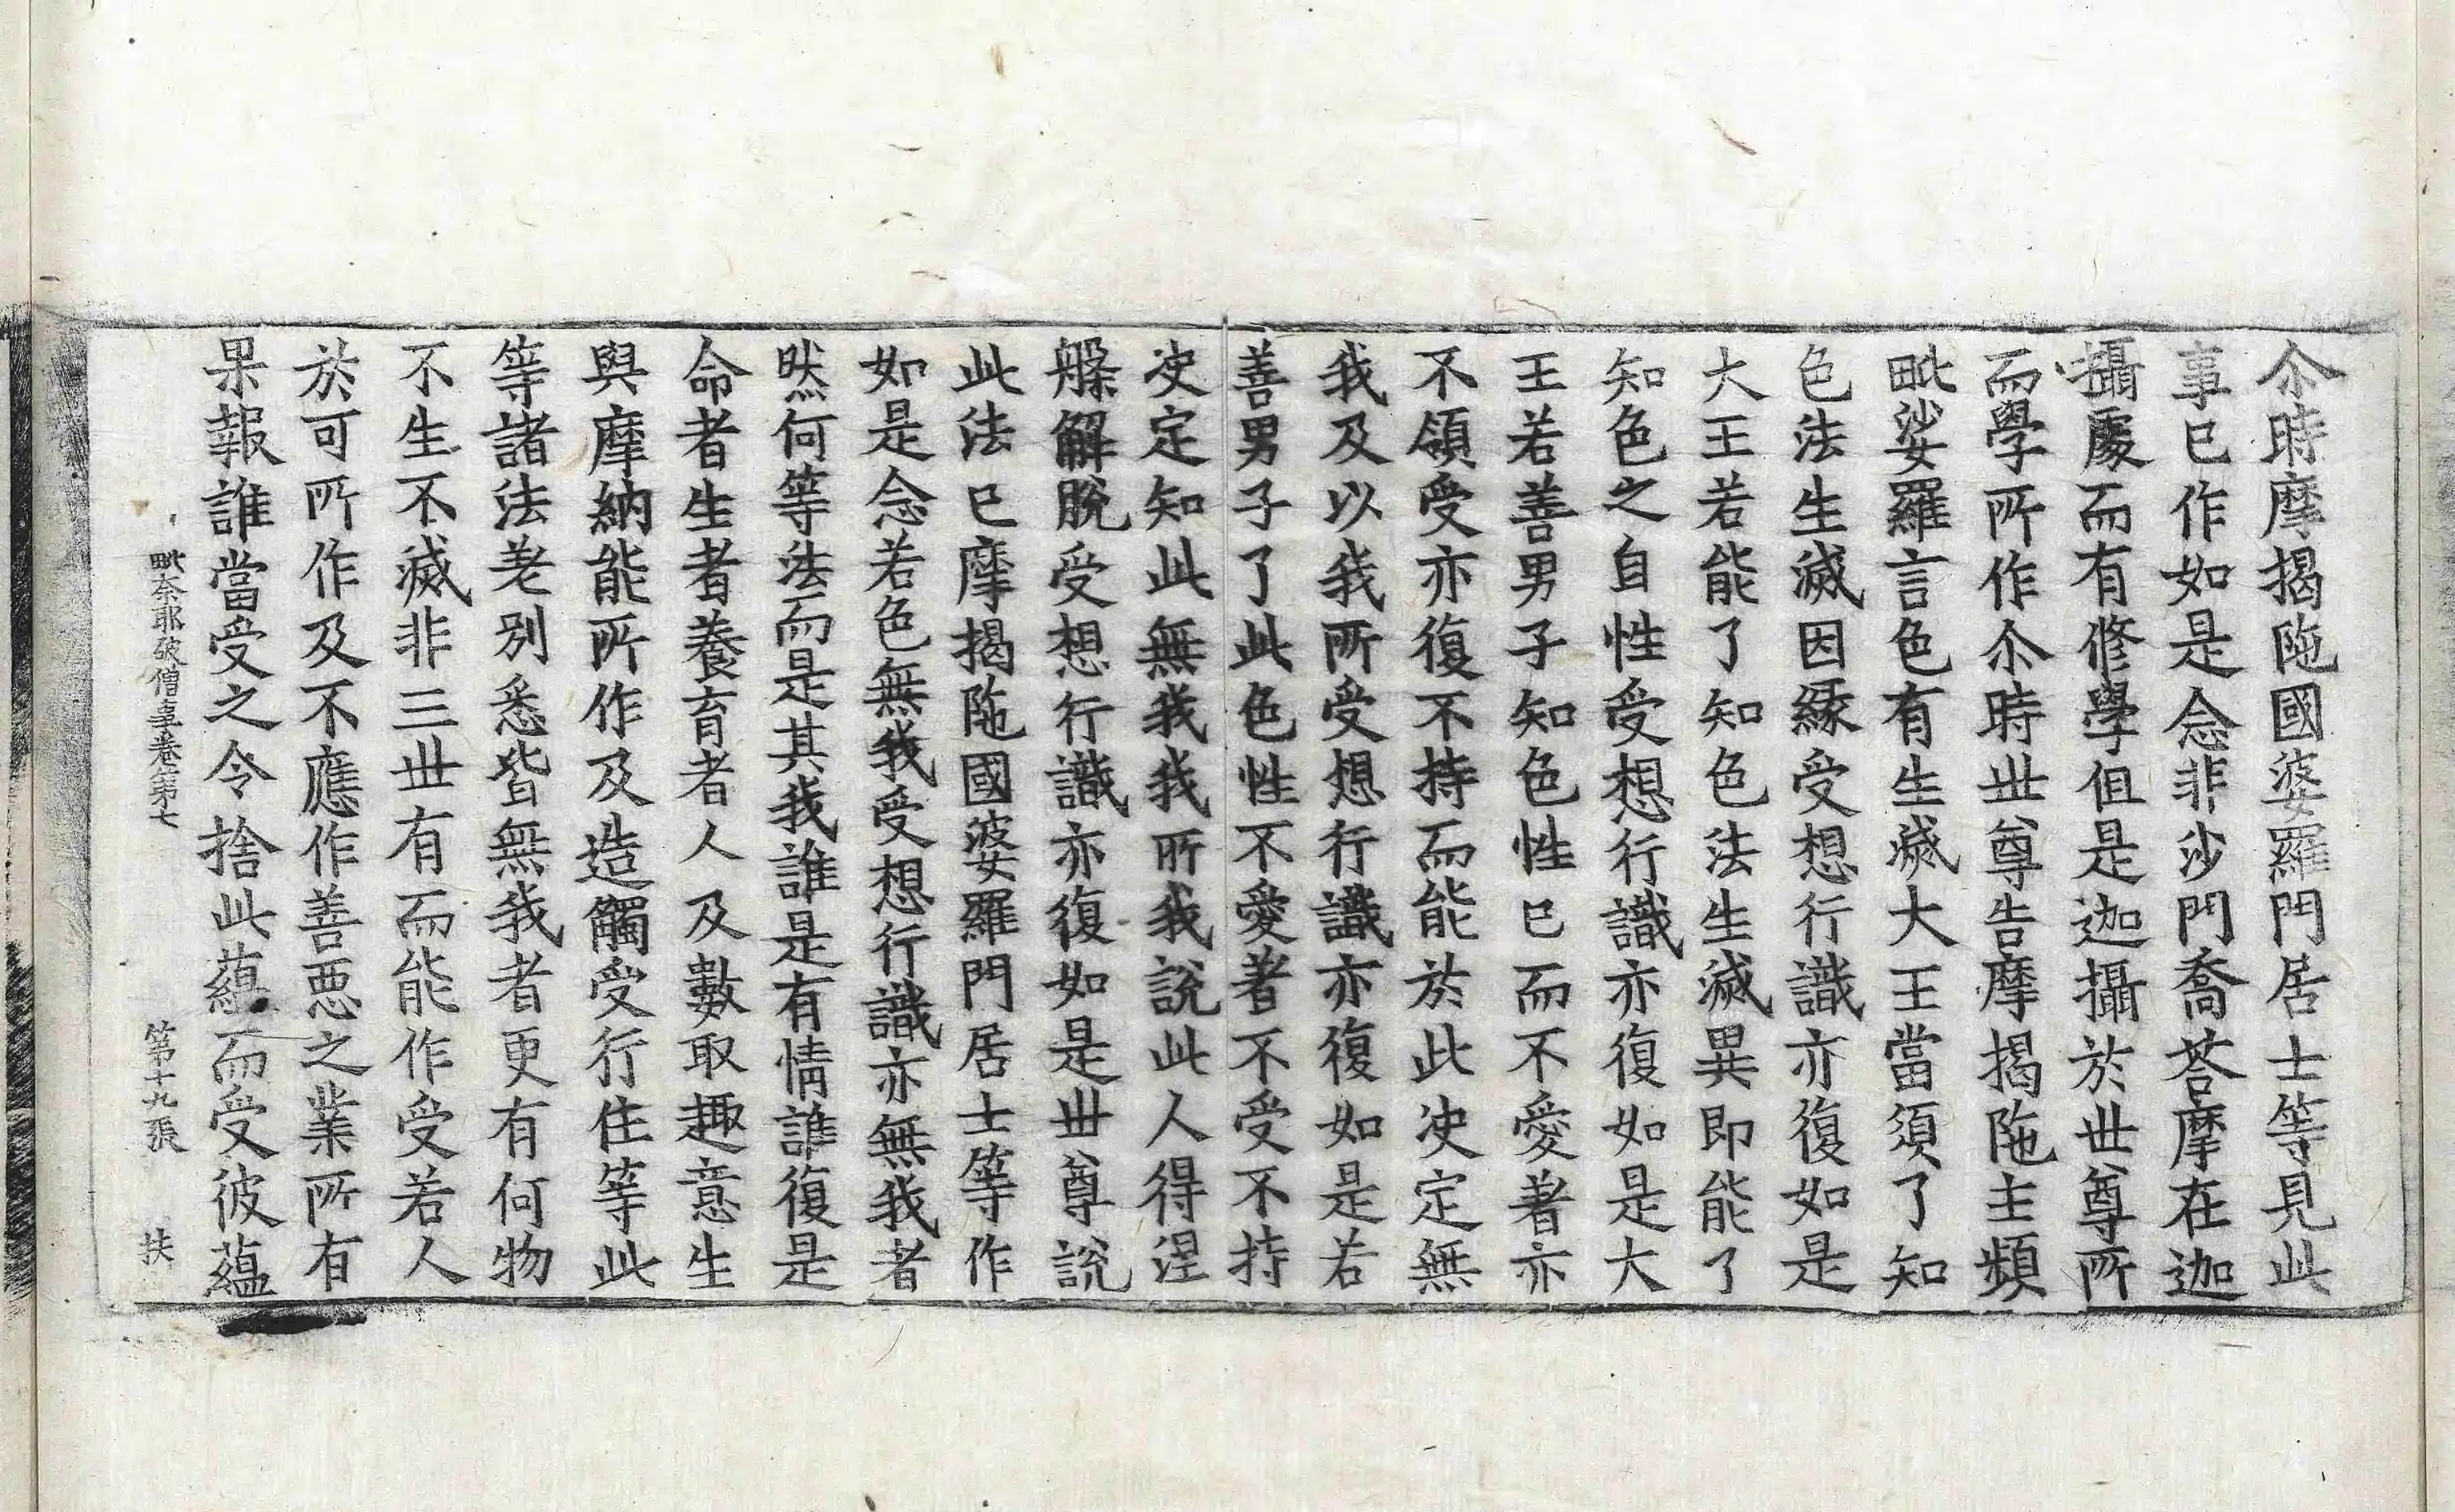 尒時摩揭陁國婆羅門居士等見此
事已作如是念非沙門喬荅摩在迦
攝處而有修學但是迦攝於丗尊所
而學所作尒時丗尊告摩揭陁主頻
毗娑羅言色有生滅大王當須了知
色法生滅因緣受想行識亦復如是
大王若能了知色法生滅異即能了
知色之自性受想行識亦復如是大
王若善男子知色性已而不愛著亦
不領受亦復不持而能於此决定無
我及以我所受想行識亦復如是若
善男子了此色性不愛著不受不持
决定知此無我我所我說此人得涅
槃解脫受想行識亦復如是丗尊說
此法已摩揭陁國婆羅門居士等作
如是念若色無我受想行識亦無我者
然何等法而是其我誰是有情誰復是
命者生者養育者人及數取趣意生
與摩納能所作及造觸受行住等此
等諸法差別悉皆無我者更有何物
不生不滅非三丗有而能作受若人
於可所作及不應作善惡之業所有
果報誰當受之令捨此蘊而受彼蘊
毗奈耶破僧事卷第七　第十九張　扶